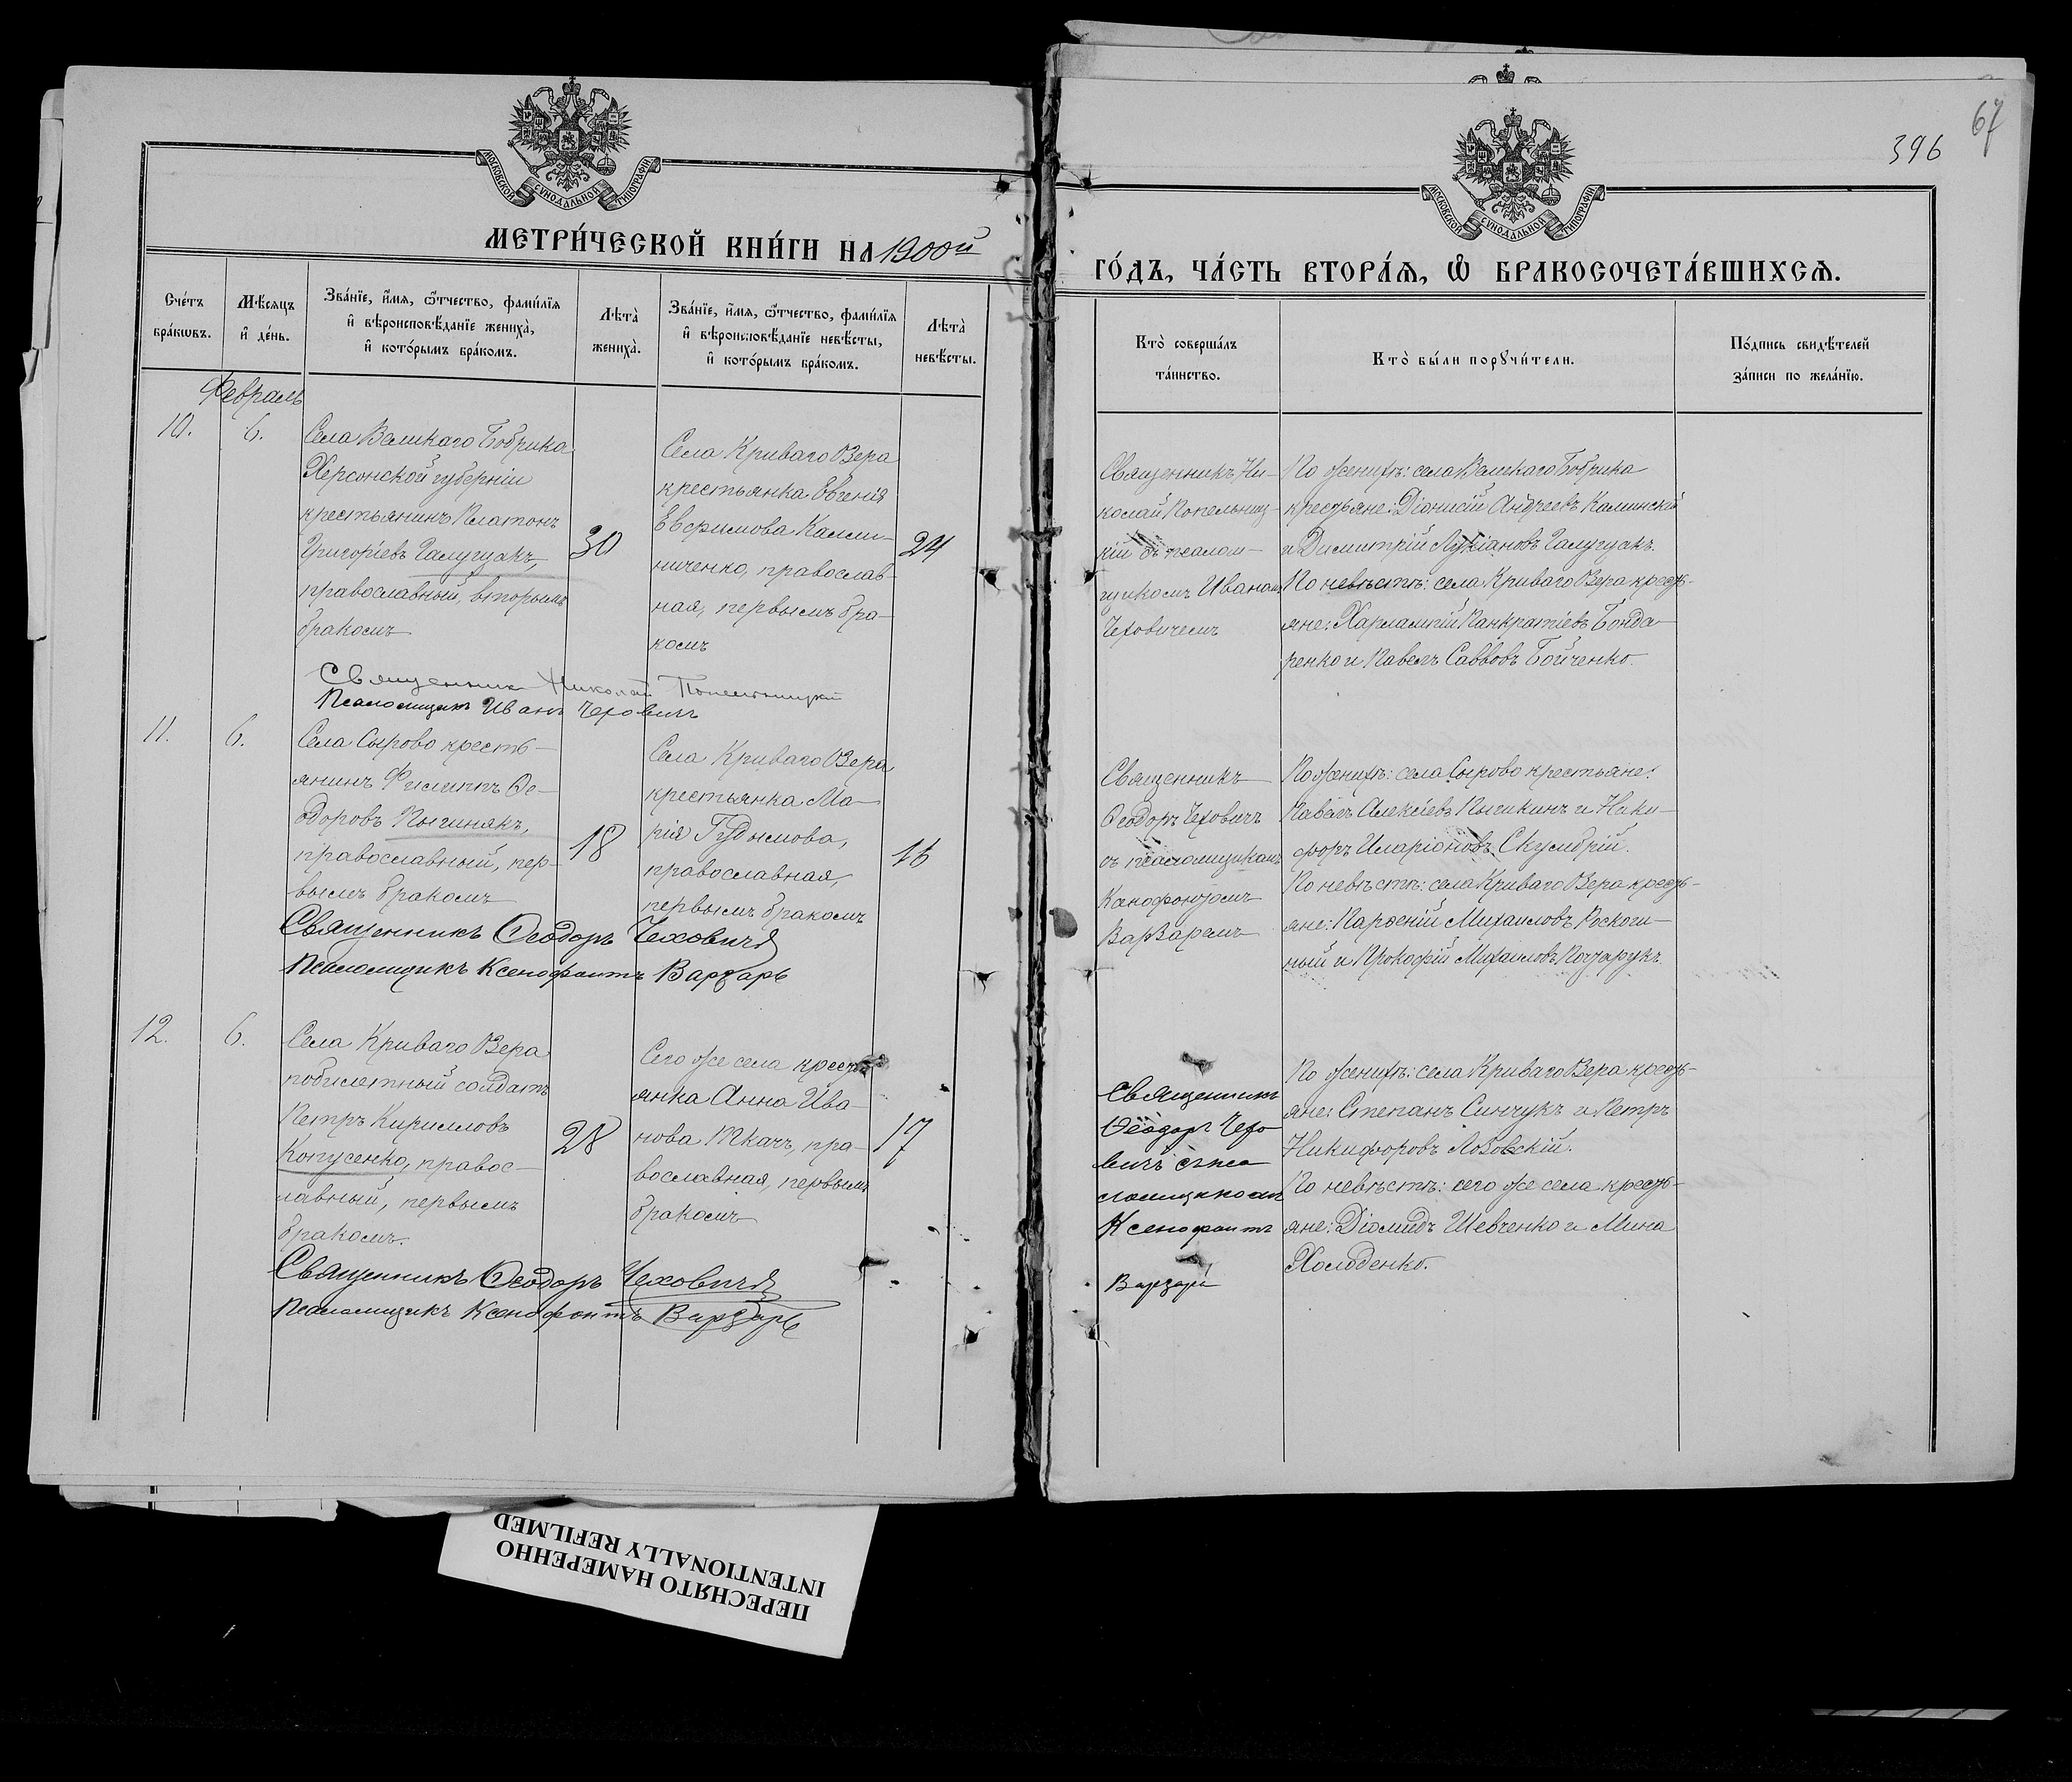 67
396
МОСКОВСКОЙ СѴНОДАЛЬНОЙ ТИПОГРАФІИ
МОСКОВСКОЙ СѴНОДАЛЬНОЙ ТИПОГРАФІИ
МЕТРИ́ЧЕСКОЙ КНИ́ГИ НА 1900й
ГО́ДЪ, ЧА́СТЬ ВТОРА́Я, Ѽ БРАКОСОЧЕТА́ВШИХСЯ.
Сче́тъ
бра́кѡвъ.
Мѣ́сяцъ
и҆ де́нь.
Зва́нїе, и҆́мя, ѻ҆́тчество, фами́лїя
и҆ вѣроисповѣ́данїе жениха̀,
и҆ кото́рымъ бра́комъ.
Лѣта̀
жениха̀.
Зва́нїе, и҆́мя, ѻ҆́тчество, фами́лїя
и҆ вѣроисповѣ́данїе невѣ́сты,
и҆ кото́рымъ бра́комъ.
Лѣта̀
невѣ́сты.
Кто̀ соверша́лъ
та́инство.
Кто̀ бы́ли порꙋчи́тели.
По́дпись свидѣ́телей
за́писи по жела́нїю.
Февраль
10.
6.
Села Великаго Бобрика
Херсонской губерніи
крестьянинъ Платонъ
Григоріевъ Галугузакъ,
православный, вторымъ
бракомъ
30
Села Криваго Озера
крестьянка Евгенія
Евфимова Калми-
ниченко, православ-
ная, первымъ бра-
комъ
24
Священникъ Ни-
колай Попельниц-
кій съ псалом-
щикомъ Иваномъ
Чеховичемъ
По женихѣ: села Великаго Бобрика
крестьяне: Діонисій Андреевъ Калинскій
и Димитрій Лукіановъ Галугузакъ.
По невѣстѣ: села Криваго Озера кресть-
яне: Харлампій Панкратіевъ Бонда-
ренко и Павелъ Саввовъ Бойченко.
Священникъ Николай Попельницкій
Псаломщикъ Иванъ Чеховичъ
11.
6.
Села Сырово кресть-
янинъ Филиппъ Ѳе-
одоровъ Пыгинякъ,
православный, пер-
вымъ бракомъ
18
Села Криваго Озера
крестьянка Ма-
рія Гудымова,
православная,
первымъ бракомъ
16
Священникъ
Ѳеодоръ Чеховичъ
съ псаломщикомъ
Ксенофонтомъ
Варзаремъ
По женихѣ: села Сырово крестьяне:
Павелъ Алексіевъ Пыгикинъ и Ники-
форъ Иларіоновъ Скумбрій.
По невѣстѣ: села Криваго Озера кресть-
яне: Парѳеній Михаиловъ Роскоги-
ный и Прокофій Михаиловъ Поцарукъ.
Священникъ Ѳеодоръ Чеховичъ
Псаломщикъ Ксенофонтъ Варзарь
12.
6.
Села Криваго Озера
побилетный солдатъ
Петръ Кирилловъ
Копусенко, правос-
лавный, первымъ
бракомъ.
28
Сего же села кресть-
янка Анна Ива-
нова Ткачъ, пра-
вославная, первымъ
бракомъ
17
Священникъ
Ѳеодоръ Чехо
вичъ съ пса
ломщикомъ
Ксенофонтъ
Варзарь
По женихѣ: села Криваго Озера кресть-
яне: Степанъ Синчукъ и Петръ
Никифоровъ Лозовскій.
По невѣстѣ: сего же села кресть-
яне: Діомидъ Шевченко и Мина
Холоденко.
Священникъ Ѳеодоръ Чеховичъ
Псаломщикъ Ксенофонтъ Варзарь
ПЕРЕСНЯТО НАМЕРЕННО
INTENTIONALLY REFILMED